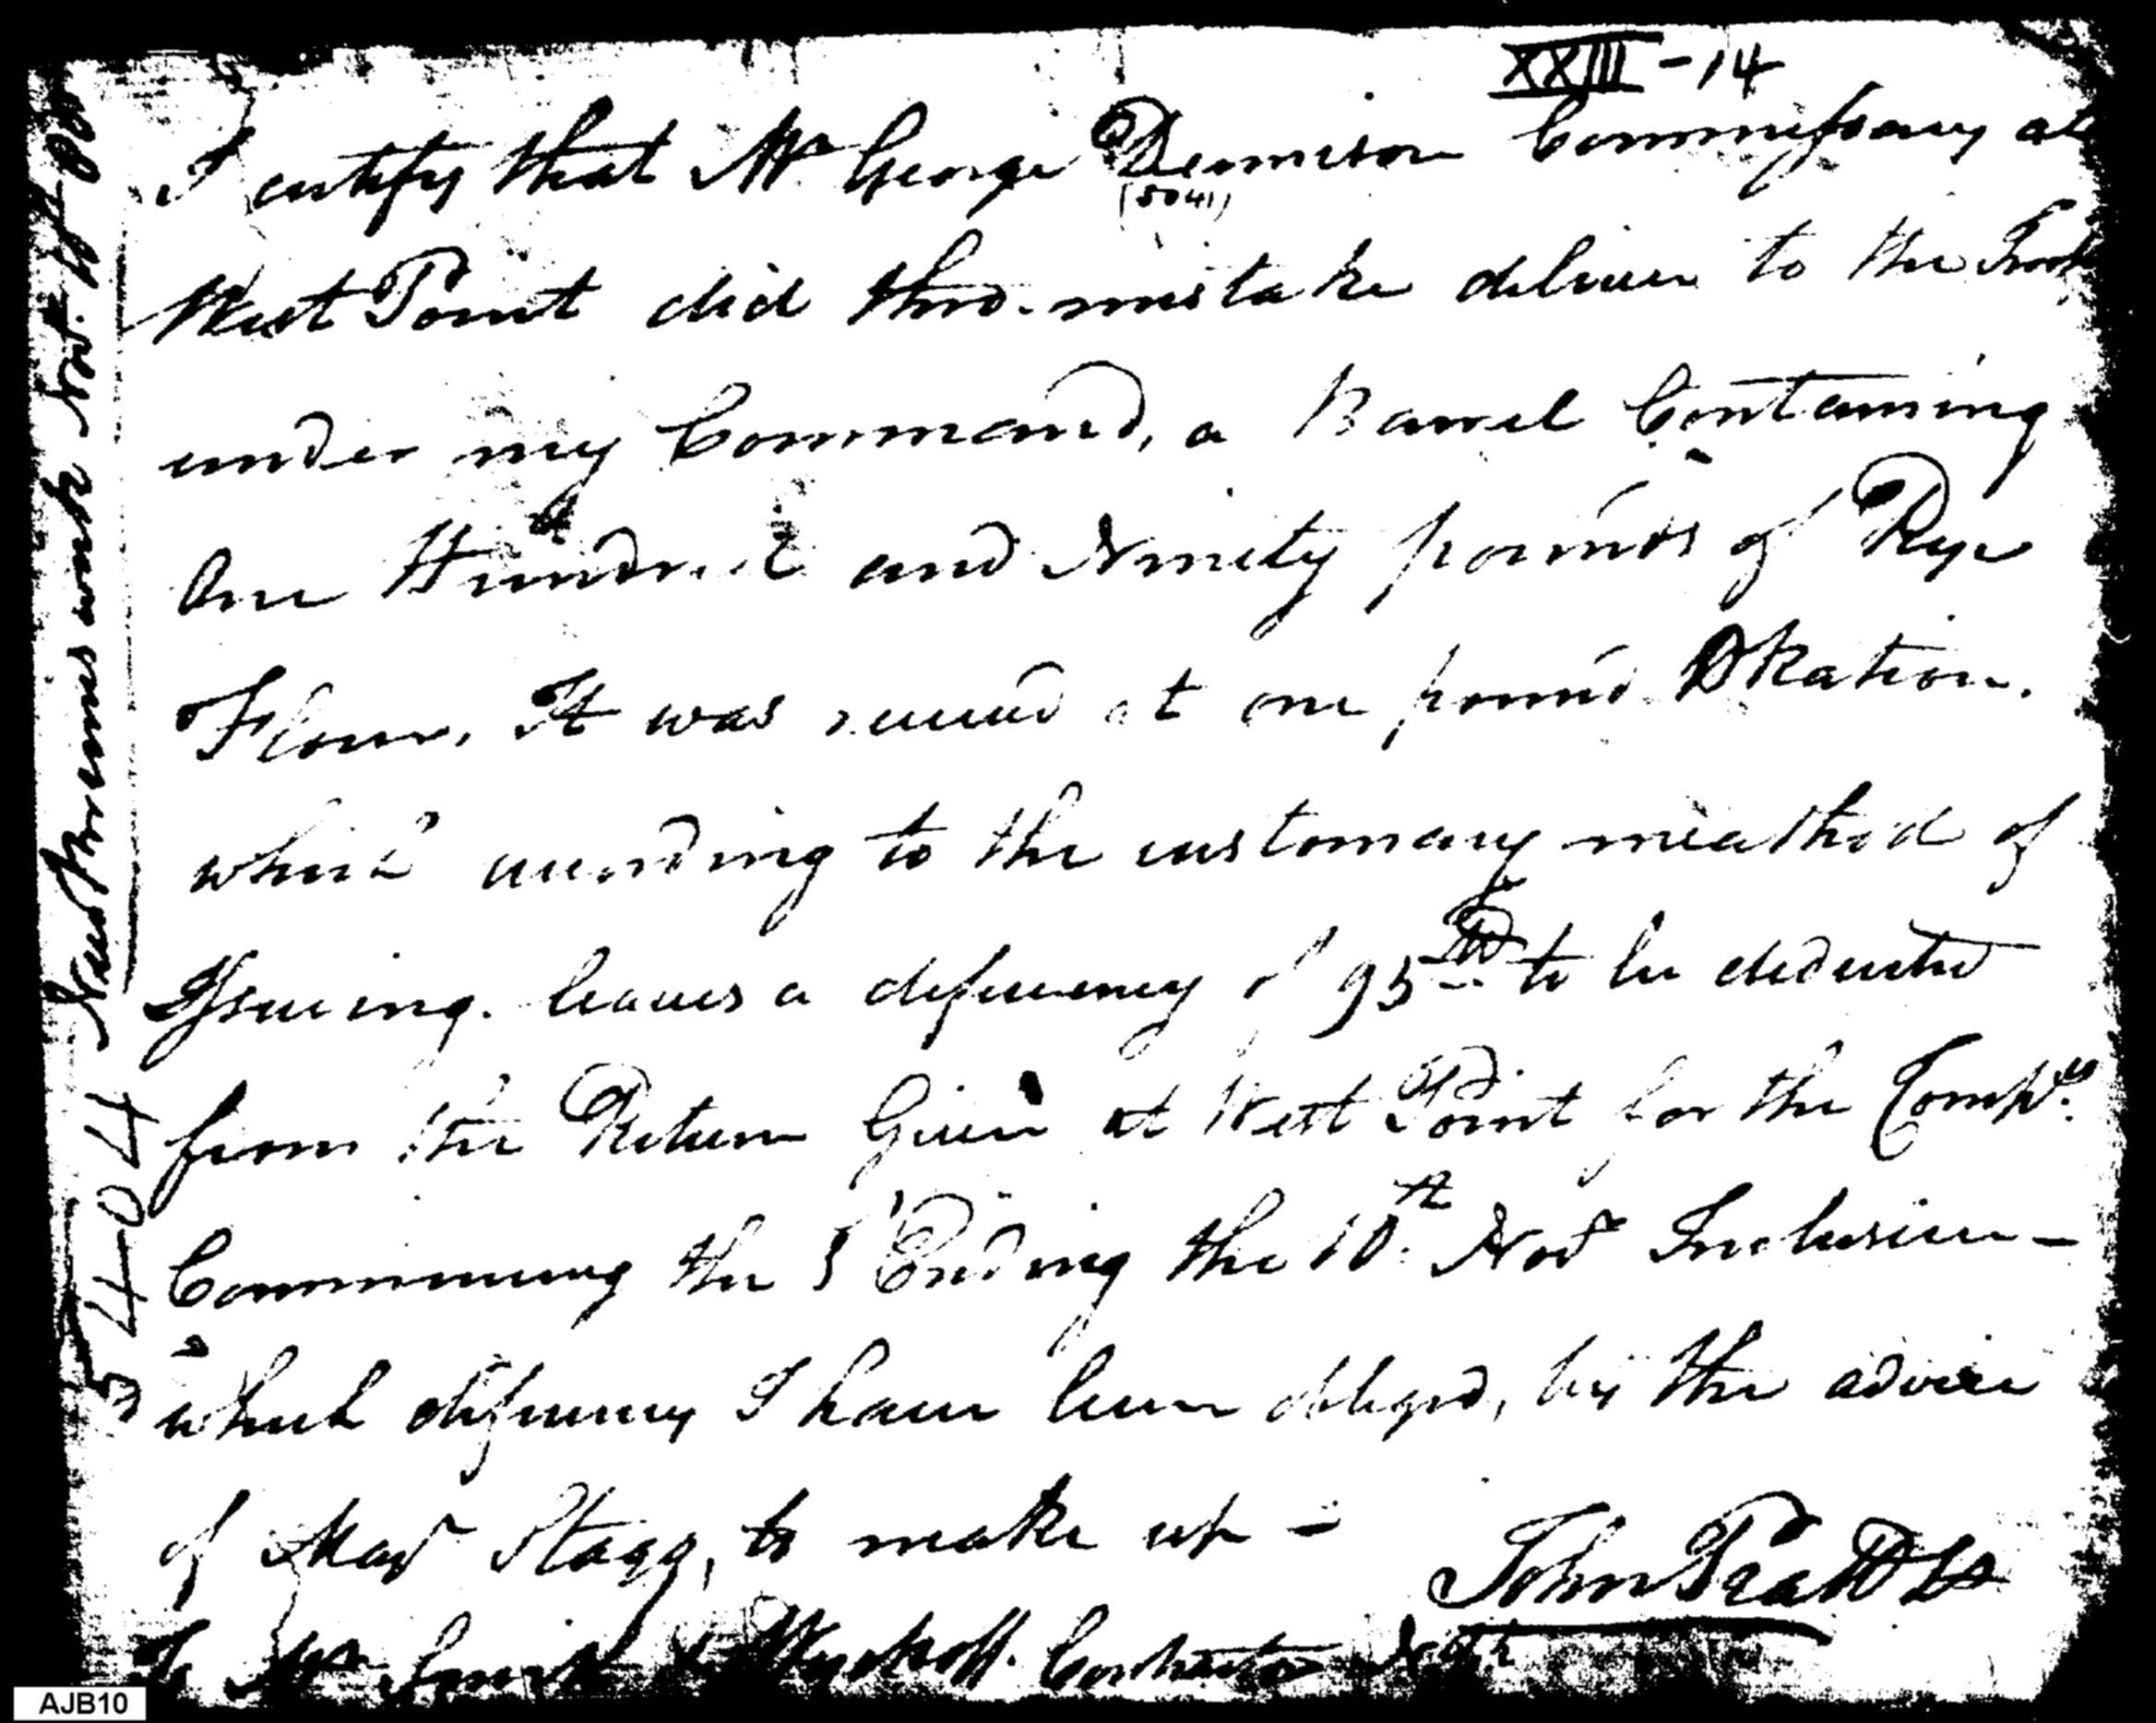 XXIII - 14
I certify that Mr George Dennison Commissary at
(5041)
West Point did thro. mistake deliver to the Troops
under my Command, a Barrel Containing
One Hundred and Ninety pounds of Rye
Flour, It was issued at one pound Ration.
which according to the customary meathod of
Issuing. leaves a deficiency of 95 to be deducted
from the Return Given at West Point for the Compys.
Commencing the 5 Ending the 10th Novr Inclusive -
which deficiency I have been obliged, by the advice
of Majr Stagg, to make up -
John Pratt Lt
To Mr Smith & Wyckoff. Contractor
New Brunswick Nov.
5404
AJB10